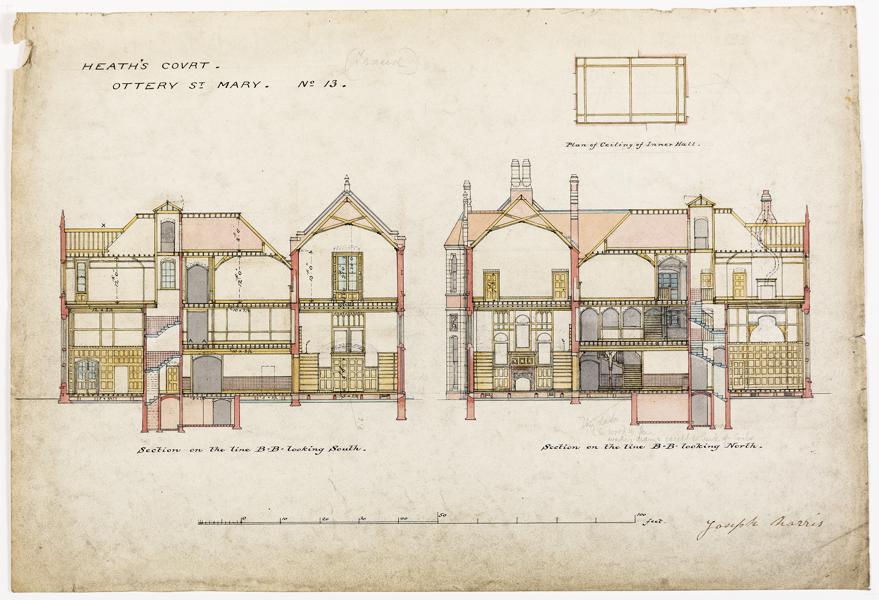 HEATH'S COVRT.
OTTERY ST MARY. No 13.
Plan of Ceiling of Inner Hall.
Section on the line B-B- looking South.
Section on the line B-B- looking North.
0 10 20 30 40 50 100 feet.
Joseph Morris